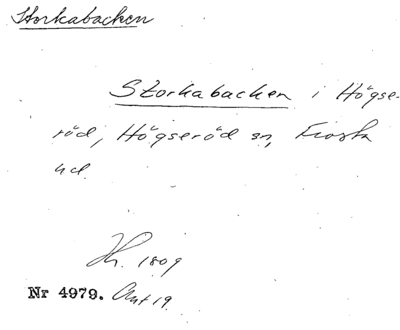 Storkabacken
Storkabacken i Högse-
röd, Högseröd sn, Frosta
hd.
Hr. 1809
Nr 4979. Akt 19.